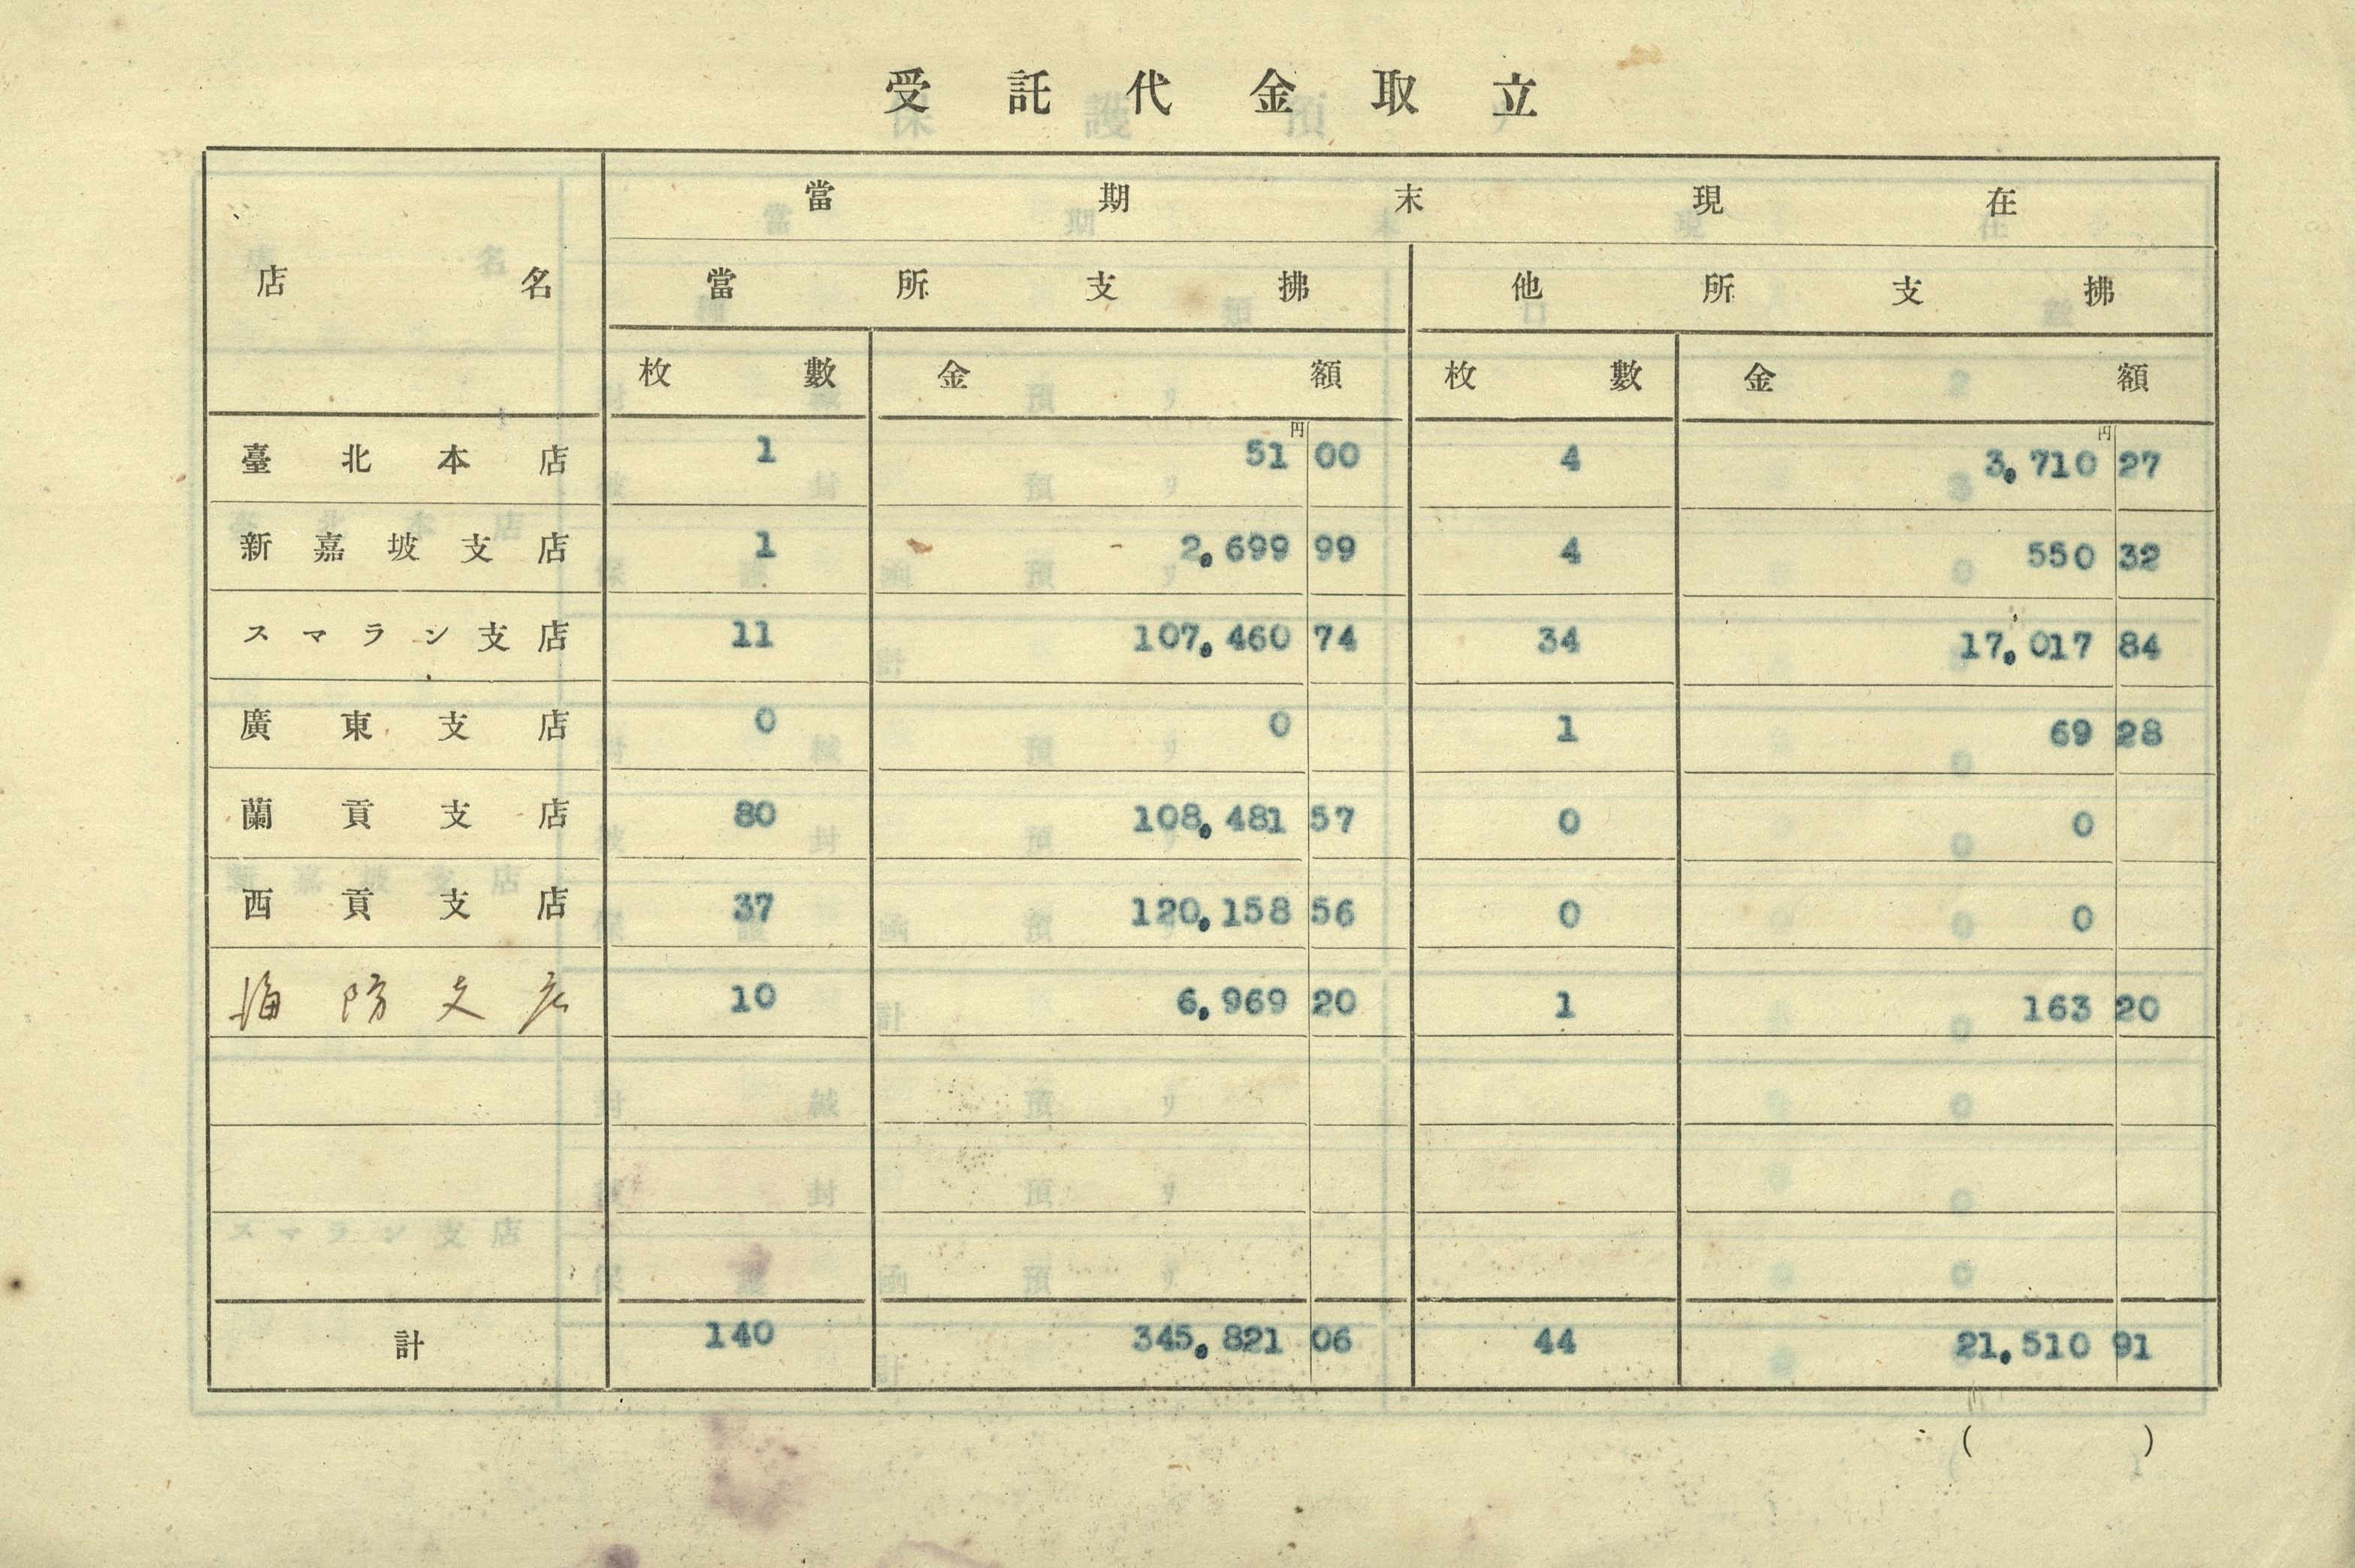 受託代金取立
店名 當期末現在
當所支拂 他所支拂
枚數 金額 枚數 金額
円 円
臺北本店 1 51 00 4 3,710 27
新嘉坡支店 1 2,699 99 4 550 32
スマラン支店 11 107,460 74 34 17,017 84
廣東支店 0 0 1 69 28
蘭貢支店 80 108,481 57 0 0
西貢支店 37 120,158 56 0 0
海防支店 10 6,969 20 1 163 20
計 140 345,821 06 44 21,510 91
( )